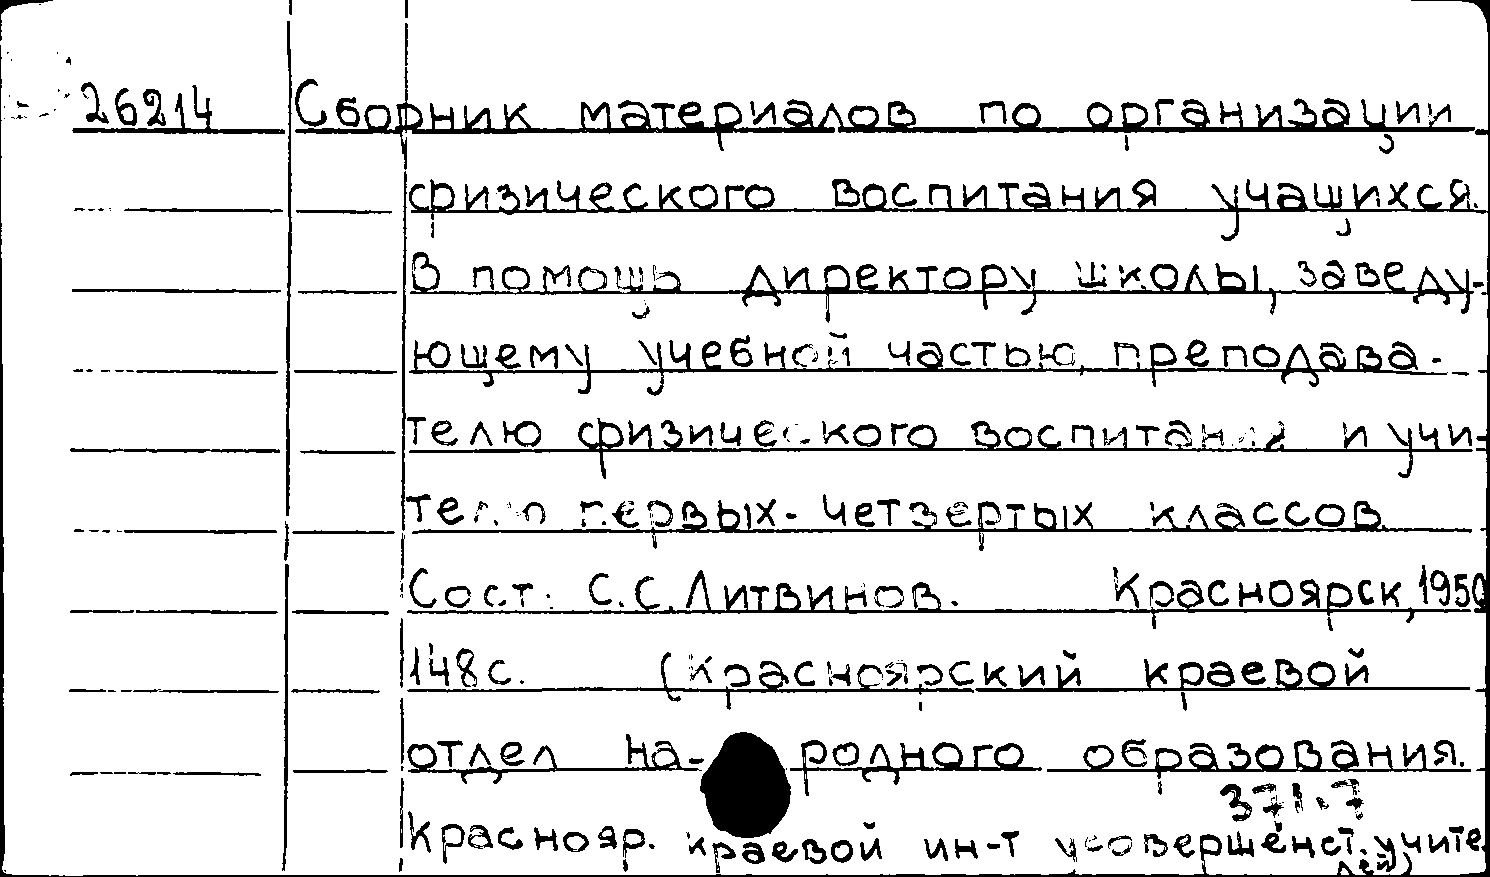 26214 Сборник материалов по организации
физического воспитания учащихся.
В помощь директору школы, заведу-
ющему учебной частью, преподава-
телю физического воспитания и учи-
телю первых-четвертых классов
Сост. С.С.Литвинов. Красноярск, 1950
148с. (Красноярский краевой
отдел на-родного образования.
371.7
Краснояр. краевой ин-т усовершенст. учите
лей)